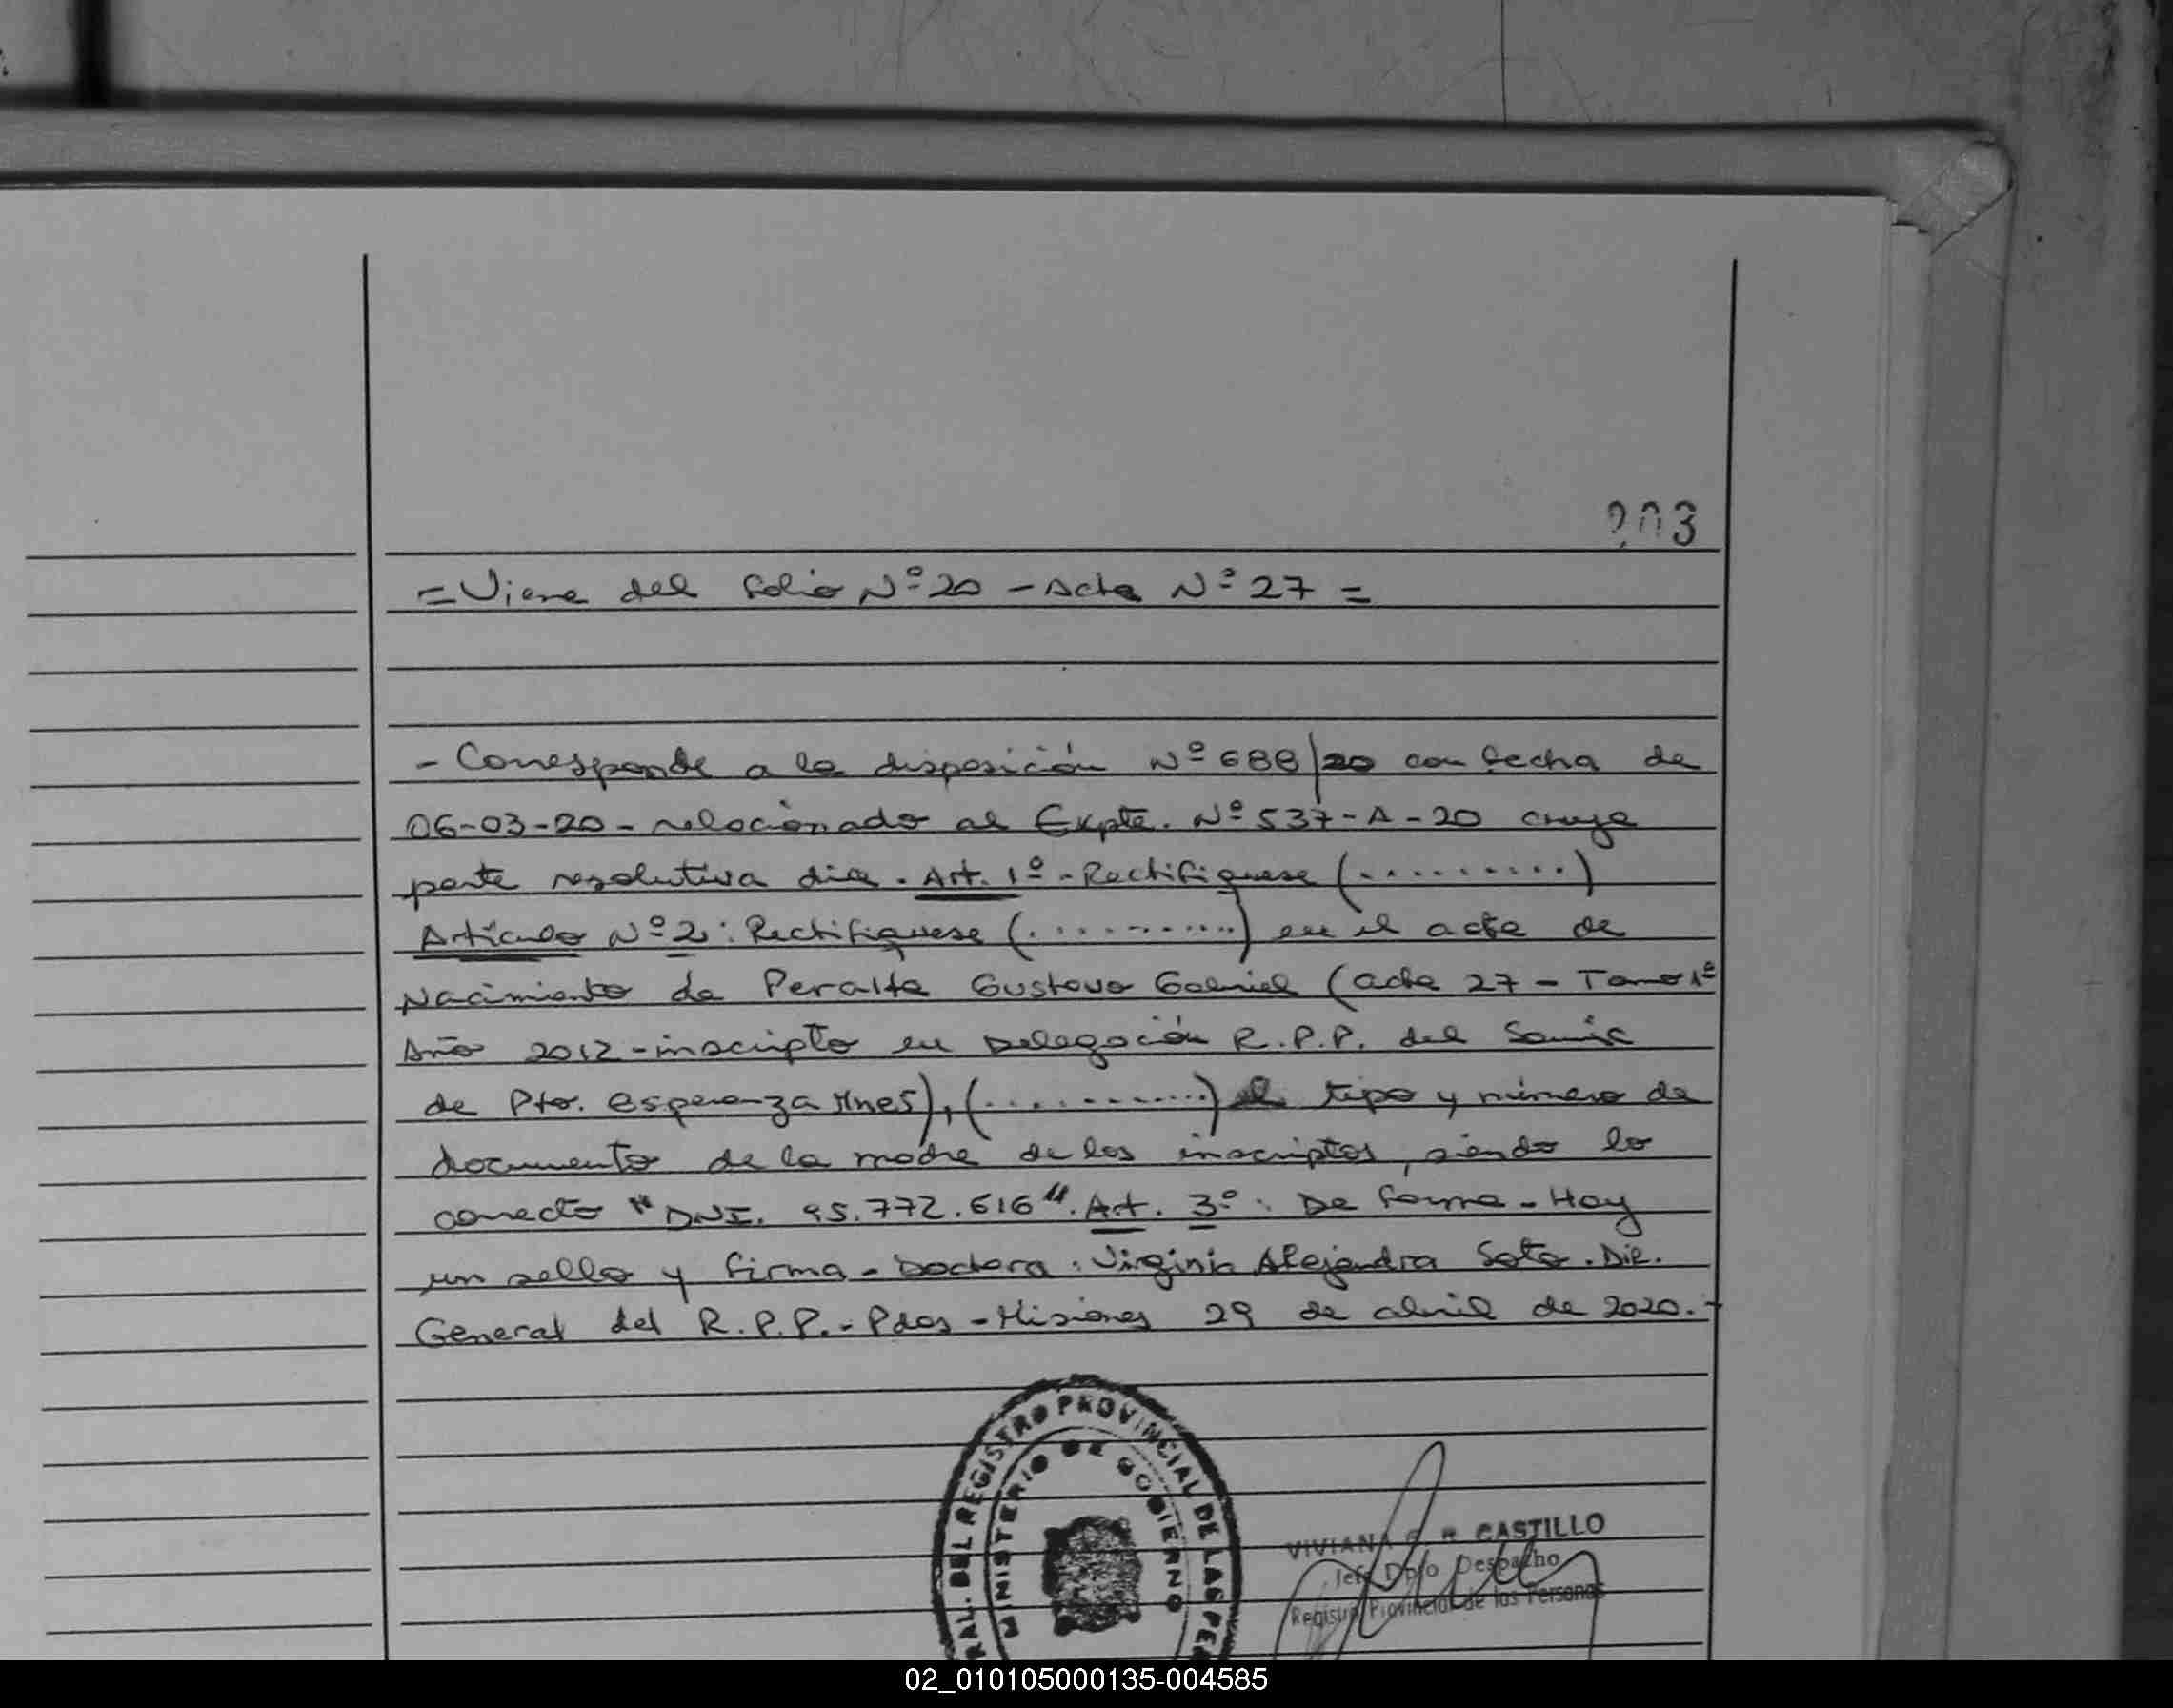 203
= Viene del folio Nº 20 - Acta Nº 27 =
- Corresponde a la disposición Nº 688/20 con fecha de
06-03-20 - relacionado al Expte. Nº 537-A-20 cuya
parte resolutiva dice. Art. 1º - Rectifiquese (..........)
Artículo Nº 2: Rectifiquese (...........) en el acta de
Nacimiento de Peralta Gustavo Gabriel (acta 27 - Tomo 1º
Año 2012 - inscripto en Delegación R.P.P. del Samic
de Pto. Esperanza Mnes), (............) el tipo y número de
documento de la madre de los inscriptos, siendo lo
correcto "DNI. 95.772.616". Art. 3º: De forma - Hay
un sello y firma - Doctora: Virginia Alejandra Soto. Dir.
General del R.P.P. - Pdas - Misiones 29 de abril de 2020.-
RAL. DEL REGISTRO PROVINCIAL DE LAS PE
MINISTERIO DE GOBIERNO
VIVIANA CASTILLO
Jefe Dpto Despacho
Registro Provincial de las Personas
02_010105000135-004585